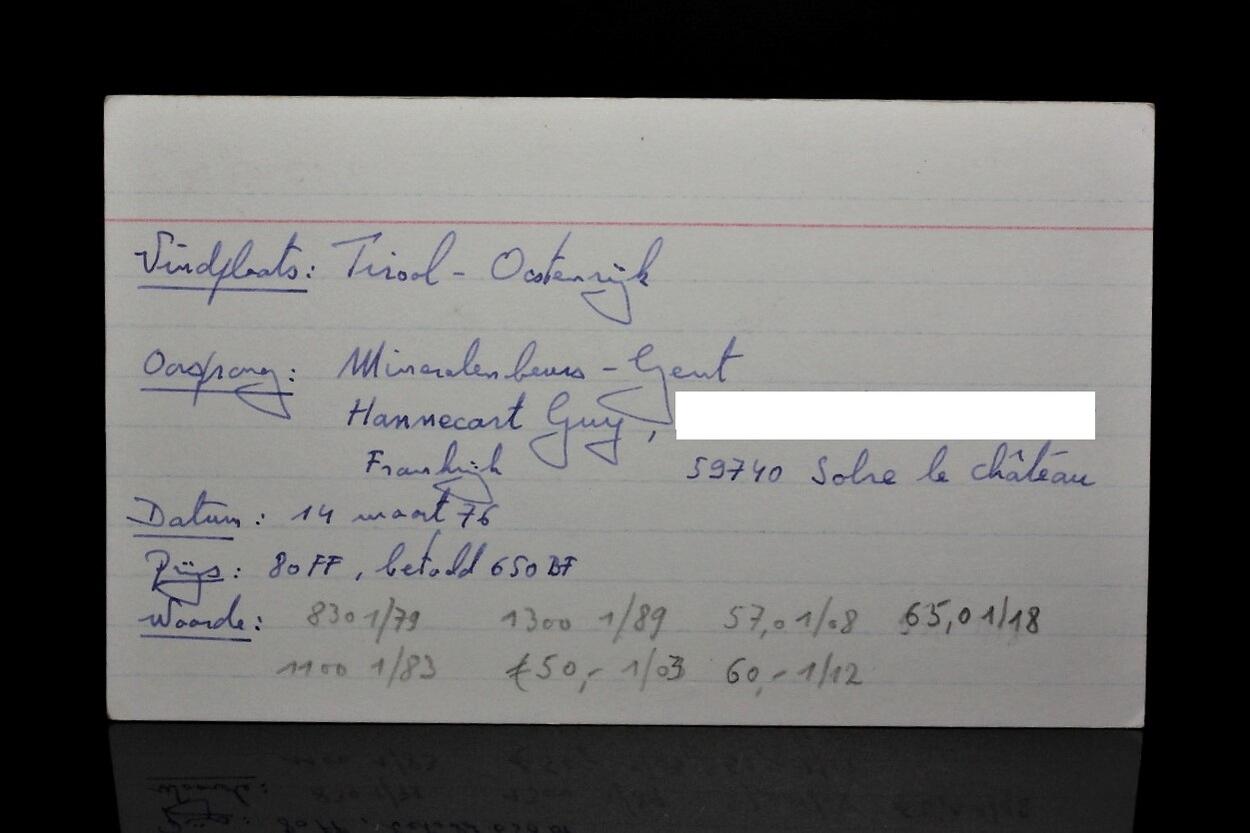 Vindplaats: Tirool - Oostenrijk
Oorsprong: Mineralenbeurs - Gent
Hannecart Guy,
Frankrijk 59740 Solre le château
Datum: 14 maart 76
Prijs: 80 FF, betaald 650 BF
Waarde: 830 1/79 1300 1/89 57,0 1/08 65,0 1/18
1100 1/83 €50,- 1/03 60,- 1/12